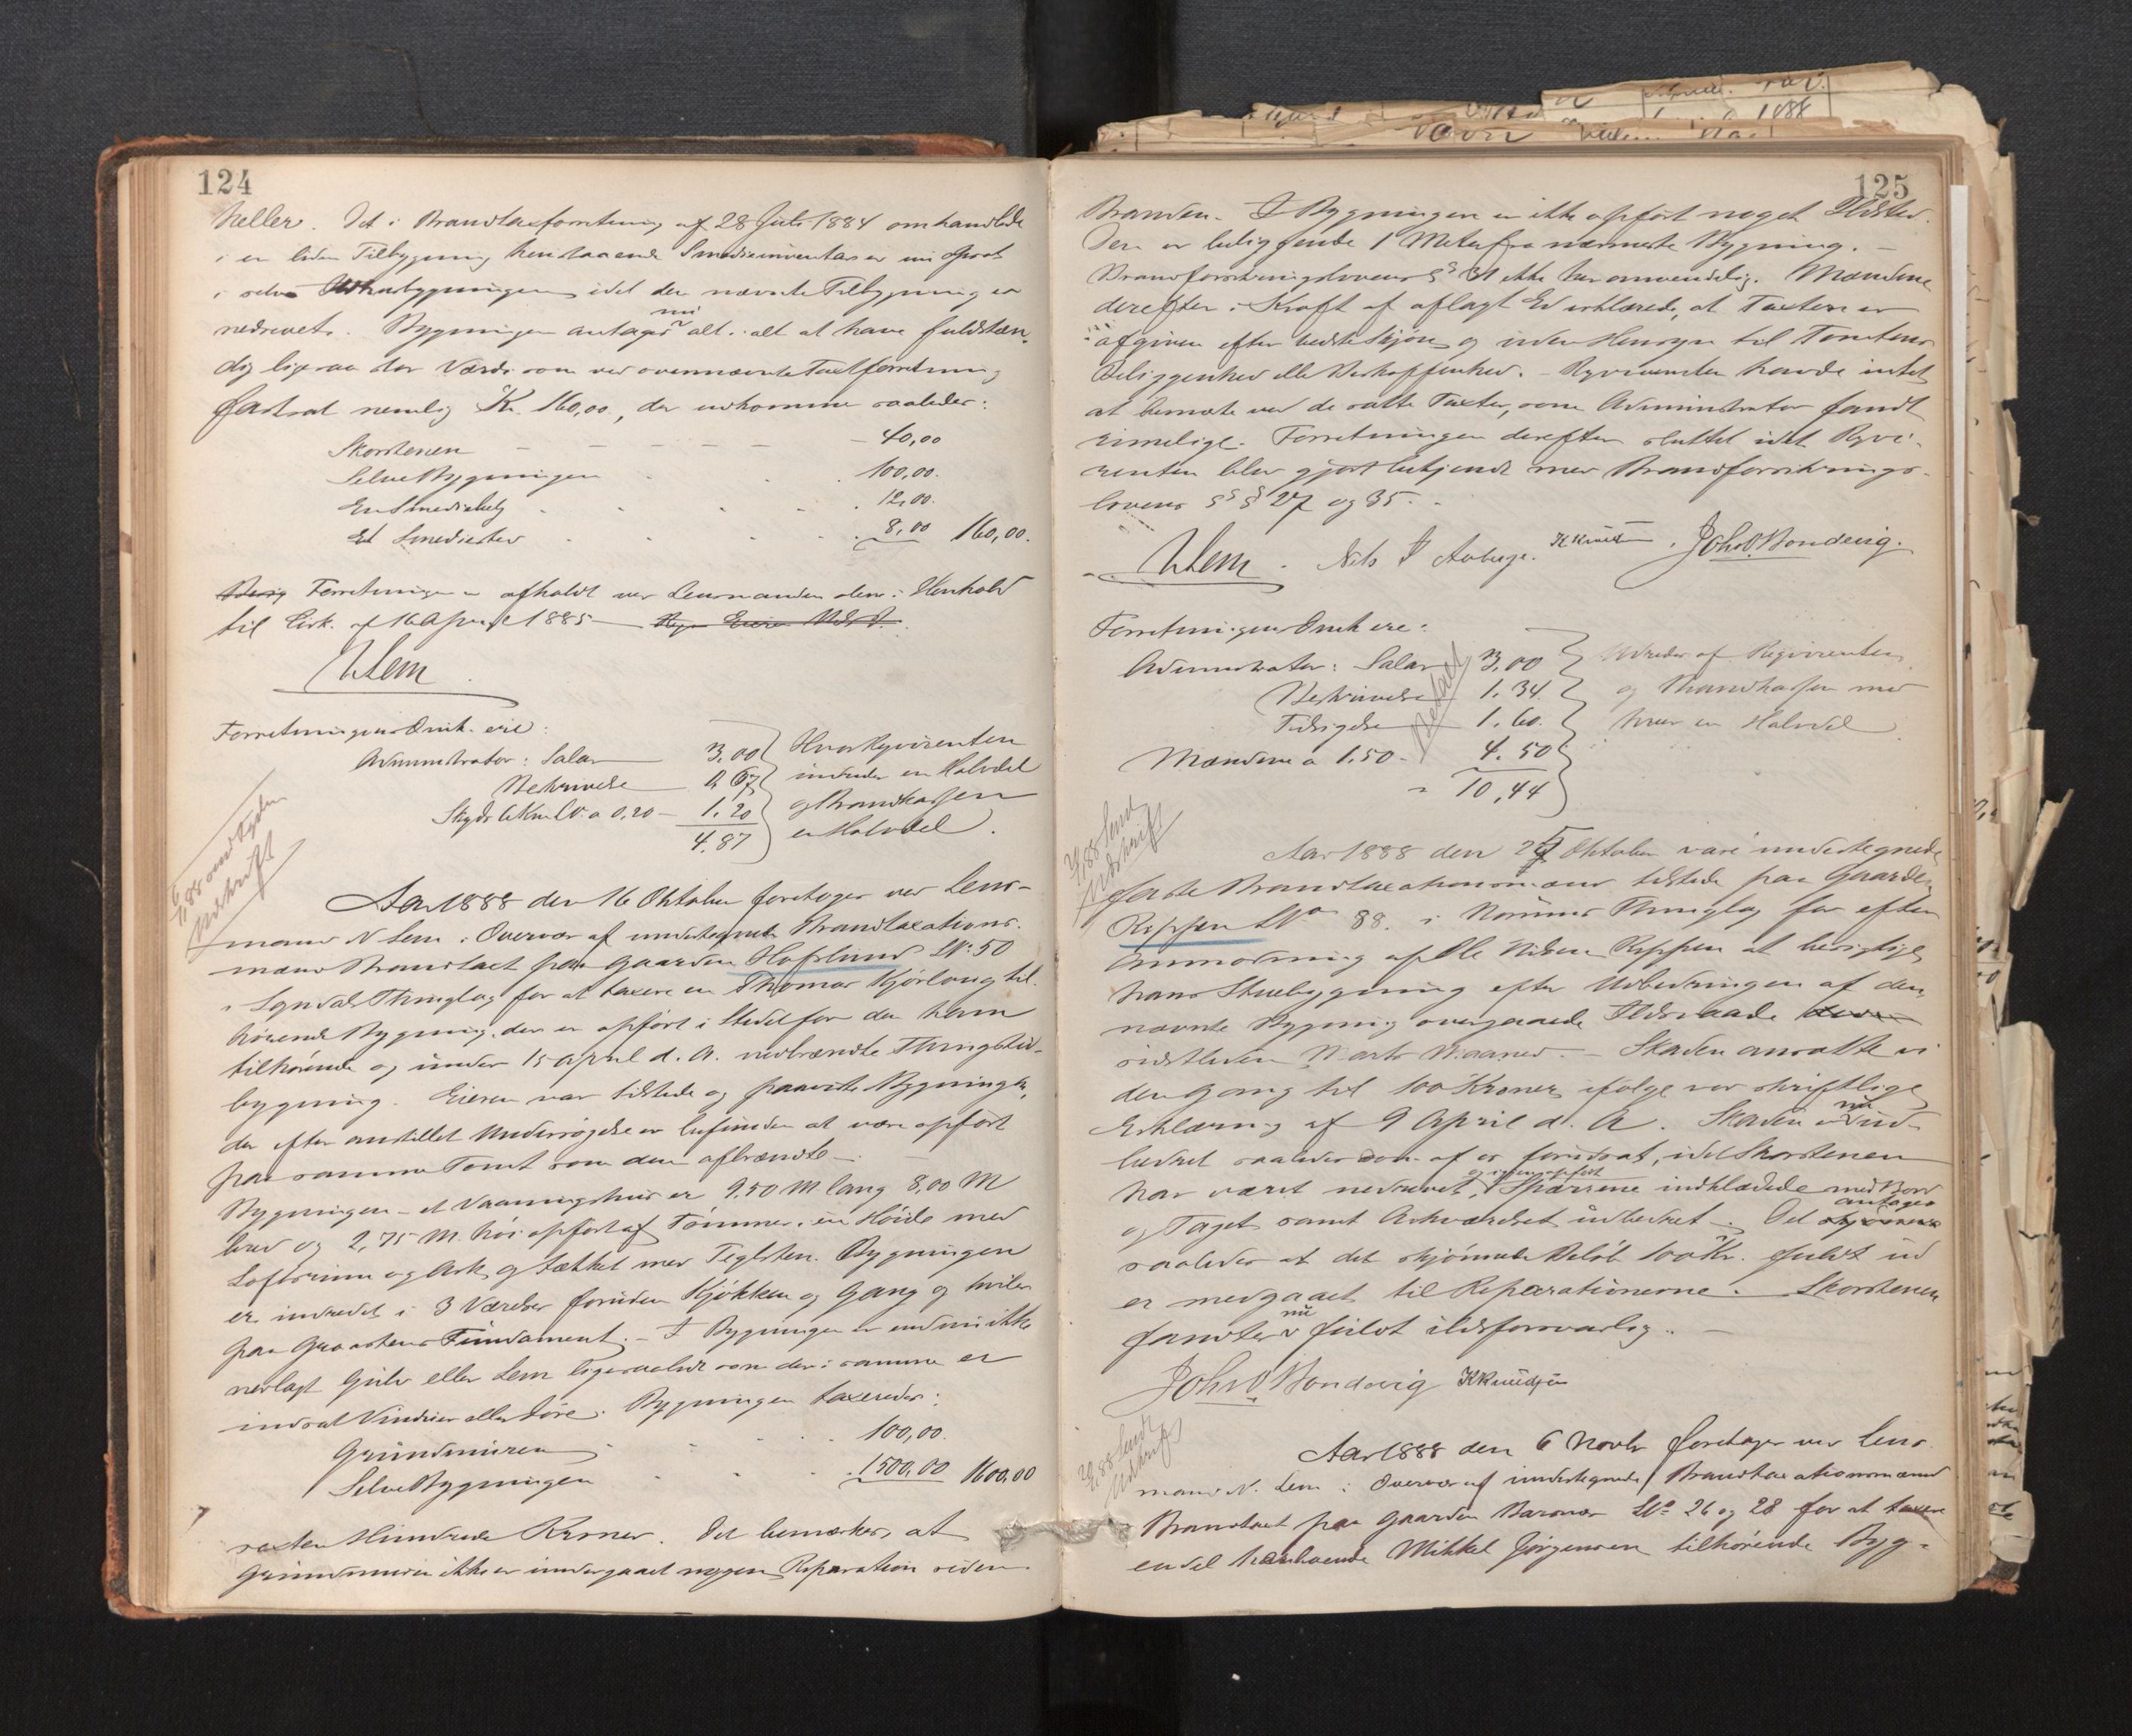 124
heller. Det i Brandtaxforretning af 28 Juli 1884 omhandlede
i en liden Tilbygning henstaaende Smedieinventar er nu opsat
i selve bygningen idet den nævnte Tilbygning er
nedrevet. Bygningen antages nu alt i alt at have fuldstæn-
dig ligesaa stor Værdi som ved ovennævnte Taxtforretning
fastsat nemlig Kr. 160,00, der udkomme saaledes:
Skorstenen 40,00
Selve Bygningen 100,00.
En Smediebelg 12,00.
Et Smediested 8,00 160,00.
Forretningen afholdt ved Lensmanden alene i Henhold
til Cirk. af 16 April 1885
NLem
Forretningens Omk. ere:
Administrator: Salær 3,00 Hvoraf Rqvirenten
Beskrivelse 0,67 udreder en Halvdel
Skyds 6 Km. à 0,20 1,20 og Brandkassen
4,87 en Halvdel.
Udskrift
Aar 1888 den 16 Oktober foretoges ved Lens-
mand N Lem i Overvær af undertegnede Brandtaxations-
mænd Brandtaxt paa Gaarden Hofslund LN: 50
i Sogndals Thinglag for at taxere en Thomas Kjørlaug til-
hørende Bygning, der er opført i Stedet for den ham
tilhørende og under 15 April d. A. nedbrændte Thingsted-
bygning. Eieren var tilstede og paaviste Bygningen,
der efter anstillet Undersøgelse er befunden at være opført
paa samme Tomt som den afbrændte —
Bygningen – et Vaaningshus er 9,50 M lang 8,00 M
bred og 2,75 M. høi opført af Tømmer, en Høide med
Loftsrum og Ark og tækket med Teglsten. Bygningen
er indredet i 3 Værelser foruden Kjøkken og Gang og hviler
paa Graastens Fundament. – I Bygningen er endnu ikke
nedlagt Gulv eller Lem ligesaalidt som der i samme er
indsat Vinduer eller Døre. Bygningen taxeredes:
Grundmuren 100,00.
Selve Bygningen 1500,00 1600,00
sexten Hundrede Kroner. Det bemærkes, at
Grundmuren ikke er undergaaet nogen Reparation siden
125
Branden. I Bygningen er ikke opført noget Ildsted.
Den er beliggende 1 Meter fra nærmeste Bygning. –
Brandforsikringslovens § 31 ikke her anvendelig. Mændene
derefter i Kraft af aflagt Ed erklærede, at Taxten er
afgiven efter bedste Skjøn og uden Hensyn til Tomtens
Beliggenhed eller Beskaffenhed. – Rqvirenten havde intet
at bemærke ved de satte Taxter, som Administrator fandt
rimelige. Forretningen derefter sluttet idet Rqvi-
renten blev gjort bekjendt med Brandforsikrings-
lovens §§ 27 og 35.
NLem Nils I Aaberge. K Knudsen. Johs O Bondevig.
Forretningens Omk ere:
Administrator: Salær 3,00 Udredes af Reqvirenten
Beskrivelse 1.34 og Brandkassen med
Tilsigelse 1.60. hver en Halvdel
Mændene a 1.50. 4.50
10,44
Betalt
Udskrift
Aar 1888 den 25 Oktober vare undertegnede
faste Brandtaxationsmænd tilstede paa Gaarden
Rippen LNo 88. i Nornnes Thinglag for efter
Anmodning af Ole Nilsen Rippen at besigtige
hans Stuebygning efter Udbedringen af den
nævnte Bygning overgaaede Ildsvaade
sidstleden Marts Maaned. – Skaden ansatte vi
den Gang til 100 Kroner ifølge vor skriftlige
Erklæring af 9 April d. A. Skaden er nu ud-
bedret saaledes som af os forudsat, idet Skorstenen
har været nedrevet, og igjen opført Spærrene indklædede med Bord
og Taget samt Arkværket udbedret. Det antages
saaledes at det skjønnede Beløb 100 Kr. fuldt ud
er medgaaet til Reparationerne. Skorstenen
fandtes nu fuldt ildsforsvarlig. –
Johs O Bondevig K Knudsen
Udskrift
Aar 1888 den 6 Novbr foretoges ved Lens-
mand N. Lem i Overvær af undertegnede Brandtaxationsmænd
Brandtaxt paa Gaarden Barsnes LNo 26 og 28 for at taxere
endel hørende Mikkel Jørgensen tilhørende Byg-